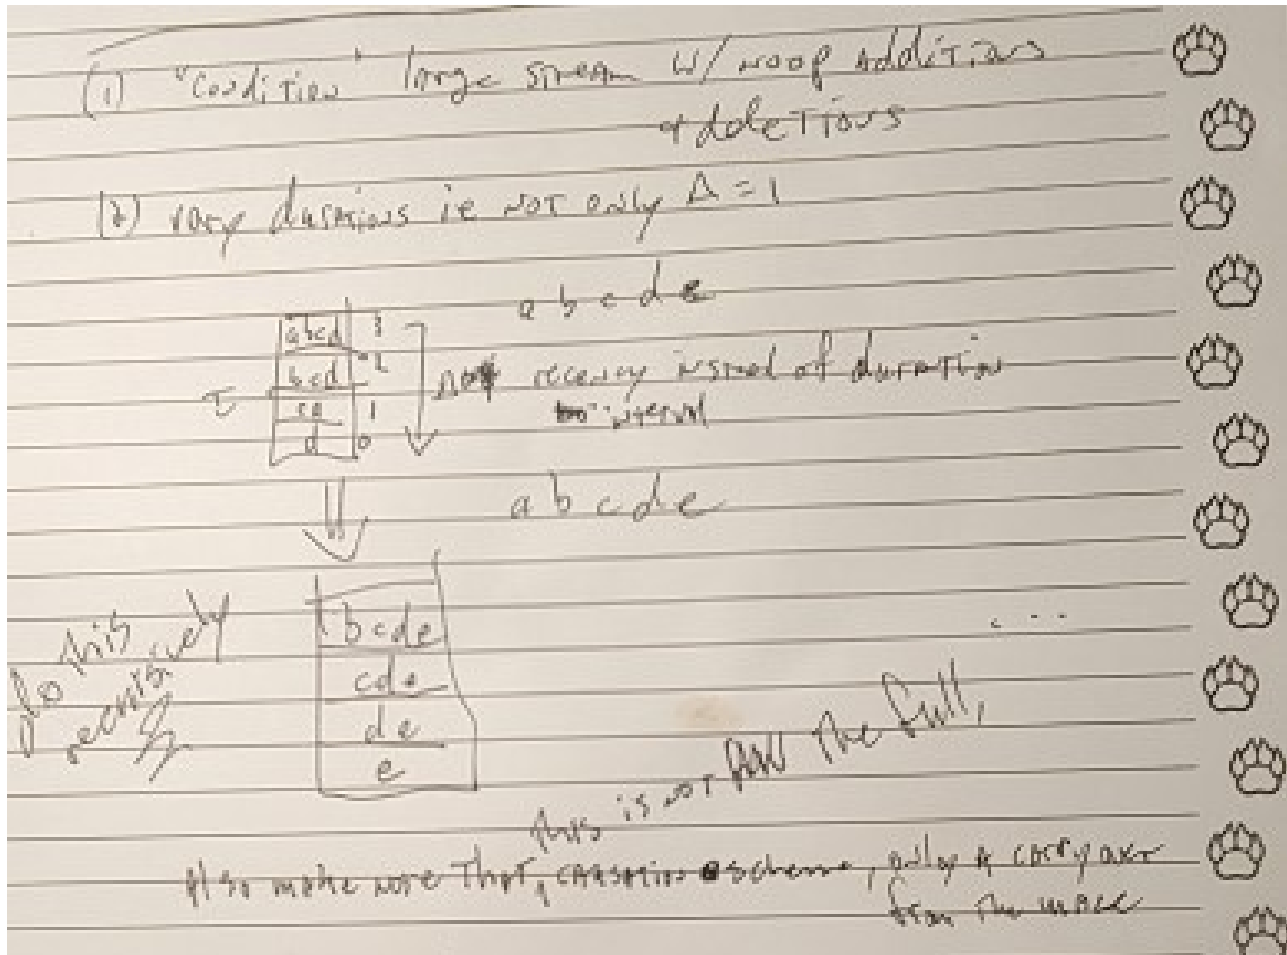 (1) "Condition" large stream w/ noop additions
+ deletions
(2) vary durations ie not only Δ = 1
a b c d e
abcd 3
bcd 2
τ
cd 1
d 0
recency instead of duration
interval
a b c d e
do this
recursively
bcde
cde
de
e
....
this is not the full,
Also make note that, causation scheme, only a carry over
from the